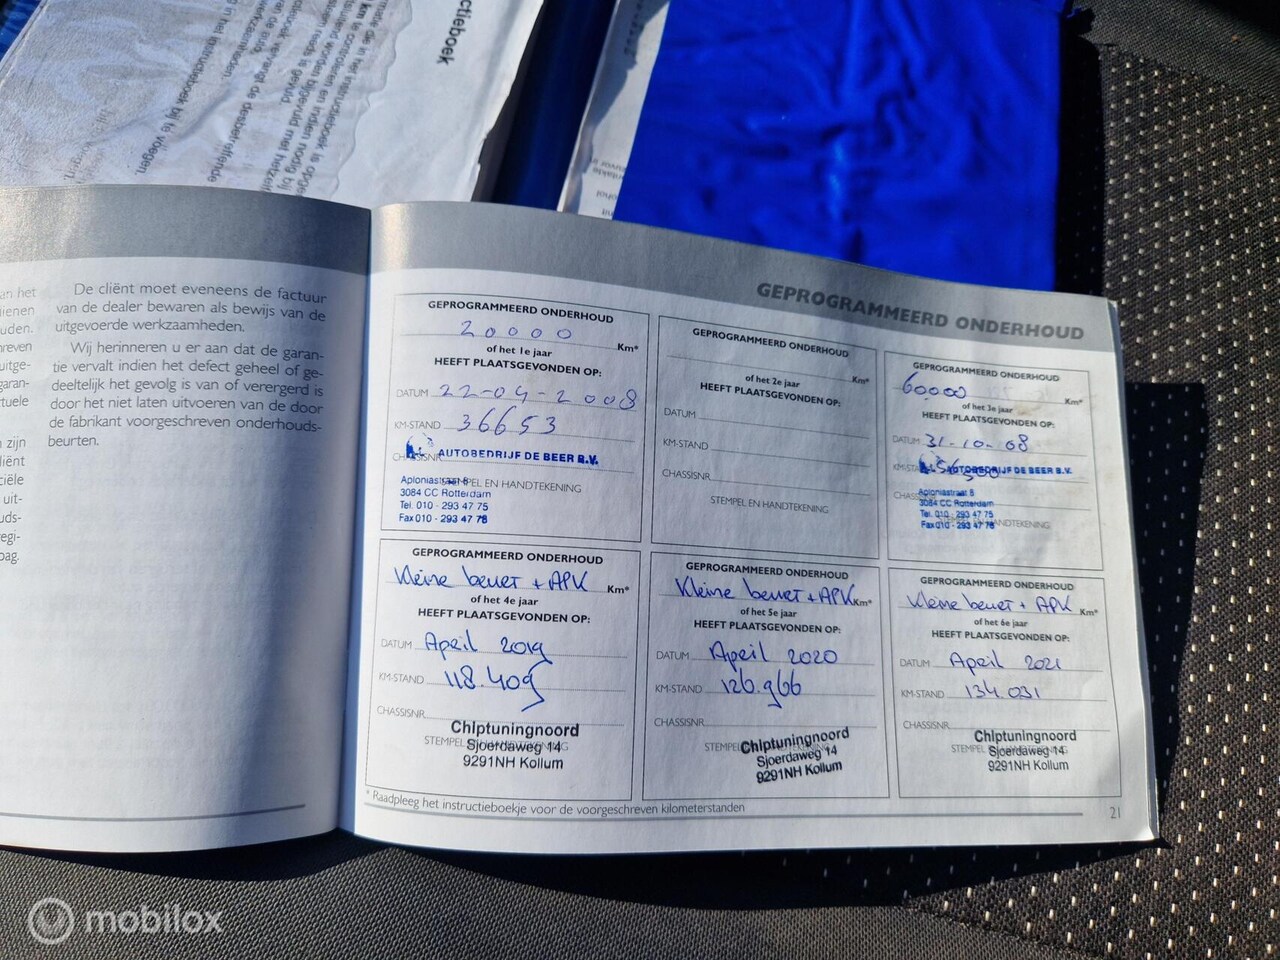 ctieboek
in het instructieboek is opge
te controleren en indien nodig bij
worden bijgevuld met hetzelf
reeds is gevuld.
vervangt de desbetreffende
in het instructieboek bij te voegen.
De cliënt moet eveneens de factuur
van de dealer bewaren als bewijs van de
uitgevoerde werkzaamheden.
Wij herinneren u er aan dat de garan-
tie vervalt indien het defect geheel of ge-
deeltelijk het gevolg is van of verergerd is
door het niet laten uitvoeren van de door
de fabrikant voorgeschreven onderhouds-
beurten.
GEPROGRAMMEERD ONDERHOUD
GEPROGRAMMEERD ONDERHOUD
20000 Km*
of het 1e jaar
HEEFT PLAATSGEVONDEN OP:
DATUM 22-04-2008
KM-STAND 36653
CHASSISNR.
AUTOBEDRIJF DE BEER B.V.
Aploniastraat 8
STEMPEL EN HANDTEKENING
3084 CC Rotterdam
Tel. 010 - 293 47 75
Fax 010 - 293 47 78
GEPROGRAMMEERD ONDERHOUD
Km*
of het 2e jaar
HEEFT PLAATSGEVONDEN OP:
DATUM
KM-STAND
CHASSISNR.
STEMPEL EN HANDTEKENING
GEPROGRAMMEERD ONDERHOUD
60000 Km*
of het 3e jaar
HEEFT PLAATSGEVONDEN OP:
DATUM 31-10-08
KM-STAND
AUTOBEDRIJF DE BEER B.V.
Aploniastraat 8
3084 CC Rotterdam
Tel. 010 - 293 47 75
Fax 010 - 293 47 78
STEMPEL EN HANDTEKENING
GEPROGRAMMEERD ONDERHOUD
Kleine beurt + APK Km*
of het 4e jaar
HEEFT PLAATSGEVONDEN OP:
DATUM April 2019
KM-STAND 118.409
CHASSISNR.
STEMPEL EN HANDTEKENING
ChIptuningnoord
Sjoerdaweg 14
9291NH Kollum
GEPROGRAMMEERD ONDERHOUD
Kleine beurt + APK Km*
of het 5e jaar
HEEFT PLAATSGEVONDEN OP:
DATUM April 2020
KM-STAND 126.966
CHASSISNR.
STEMPEL EN HANDTEKENING
ChIptuningnoord
Sjoerdaweg 14
9291NH Kollum
GEPROGRAMMEERD ONDERHOUD
Kleine beurt + APK Km*
of het 6e jaar
HEEFT PLAATSGEVONDEN OP:
DATUM April 2021
KM-STAND 134.031
CHASSISNR.
STEMPEL EN HANDTEKENING
ChIptuningnoord
Sjoerdaweg 14
9291NH Kollum
* Raadpleeg het instructieboekje voor de voorgeschreven kilometerstanden
21
mobilox